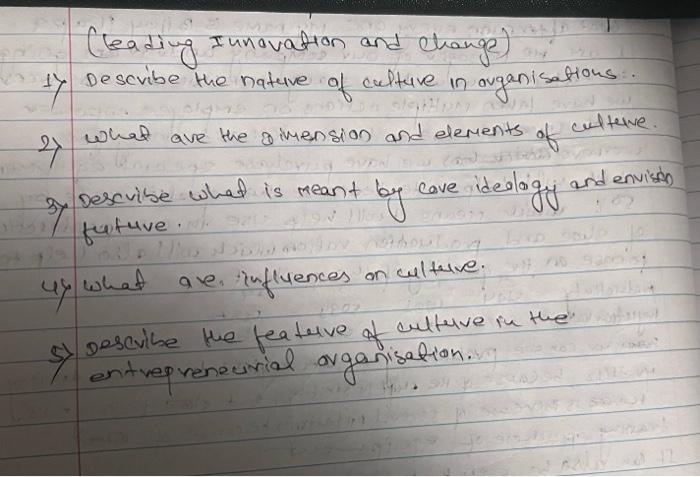 (Leading Innovation and change)
1) Describe the nature of culture in organisations.
2) what are the dimension and elements of culture.
3) Describe what is meant by core ideology and envison
future.
4) what are influences on culture.
5) Describe the feature of culture in the
entrepreneurial organisation.